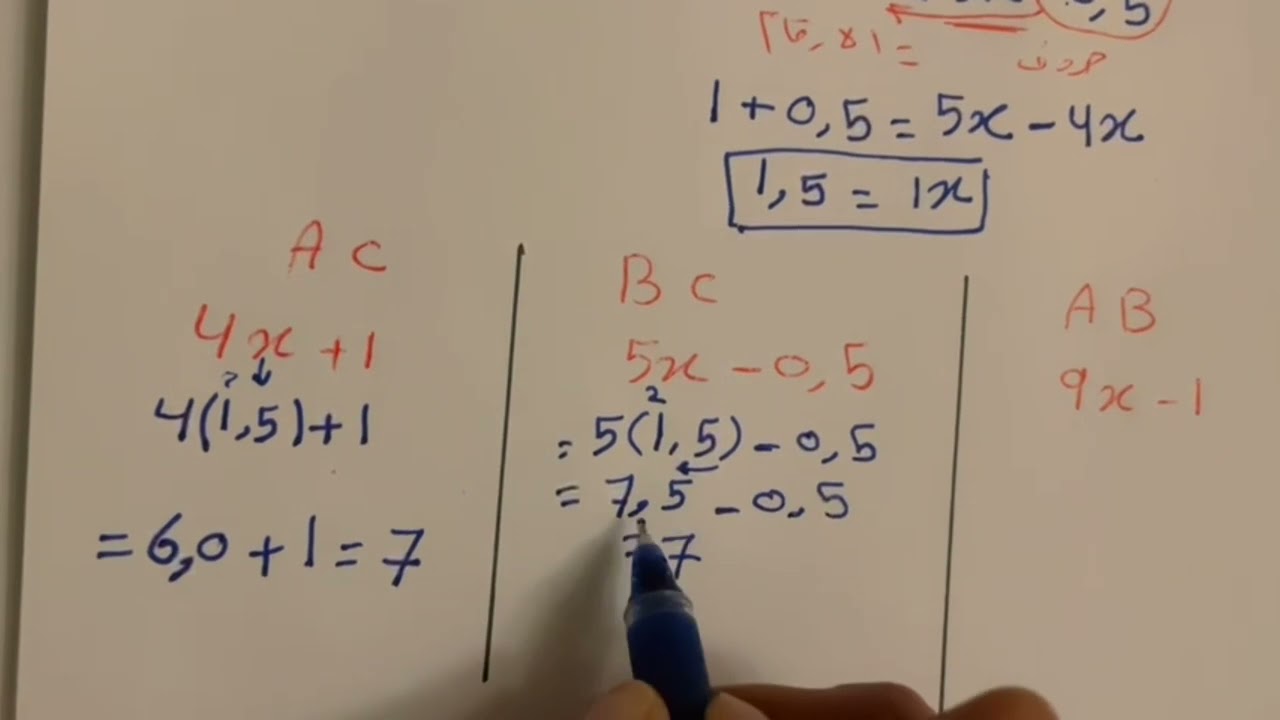 1 + 0,5 = 5x - 4x
1,5 = 1x
A C
4x + 1
4(1,5) + 1
= 6,0 + 1 = 7
B C
5x - 0,5
= 5(1,5) - 0,5
= 7,5 - 0,5
= 7
A B
9x - 1